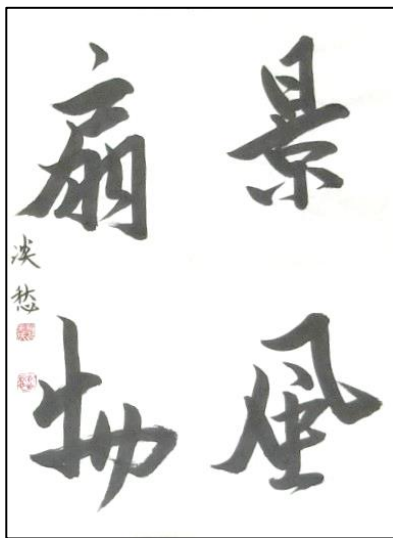 景風
扇物
淡愁